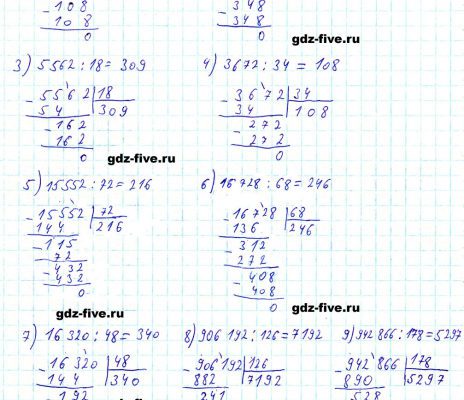 - 108
108
0
- 348
348
0
gdz-five.ru
3) 5562 : 18 = 309
- 5562 | 18
54 | 309
- 162
162
0
gdz-five.ru
4) 3672 : 34 = 108
- 3672 | 34
34 | 108
- 272
272
0
5) 15552 : 72 = 216
- 15552 | 72
144 | 216
- 115
72
- 432
432
0
gdz-five.ru
6) 16728 : 68 = 246
- 16728 | 68
136 | 246
- 312
272
- 408
408
0
gdz-five.ru
7) 16 320 : 48 = 340
- 16 320 | 48
144 | 340
- 192
8) 906 192 : 126 = 7192
- 906 192 | 126
882 | 7192
241
9) 942 866 : 178 = 5297
- 942 866 | 178
890 | 5297
528